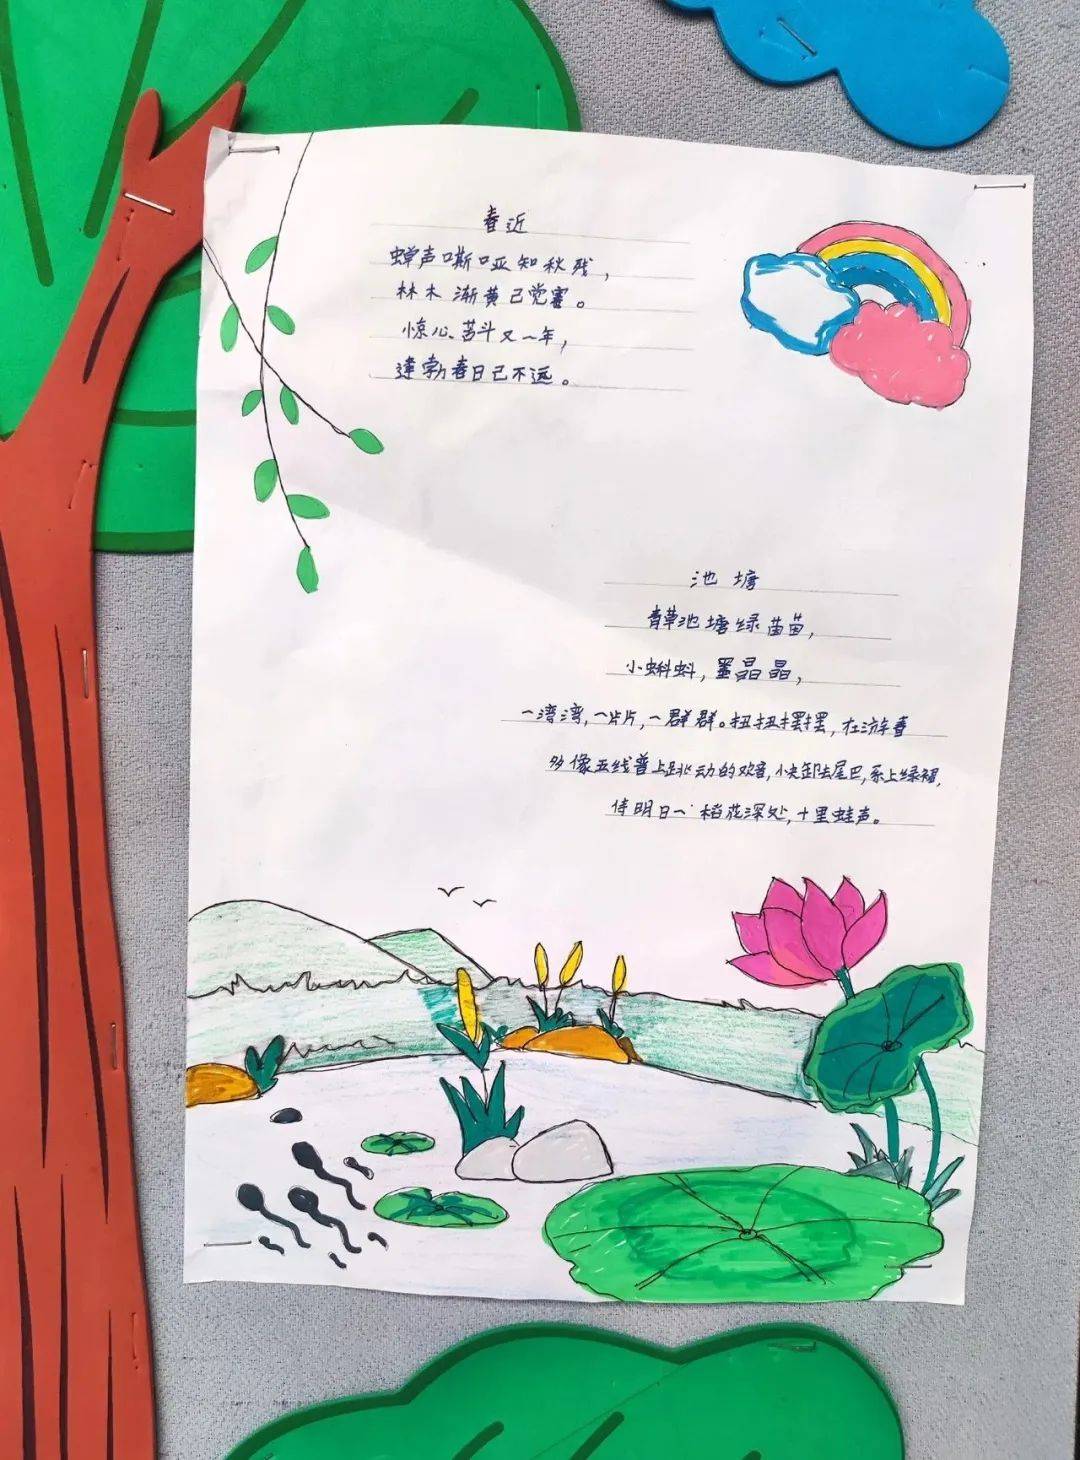 春近
蝉声嘶哑知秋残，
林木渐黄已觉寒。
惊心苦斗又一年，
蓬勃春日已不远。
池塘
青草池塘绿苗苗，
小蝌蚪，墨晶晶，
一湾湾，一片片，一群群。扭扭摆摆，在游春
多像五线普上跳动的欢音，小夫卸去尾巴，系上绿裙，
待明日一稻花深处，十里蛙声。